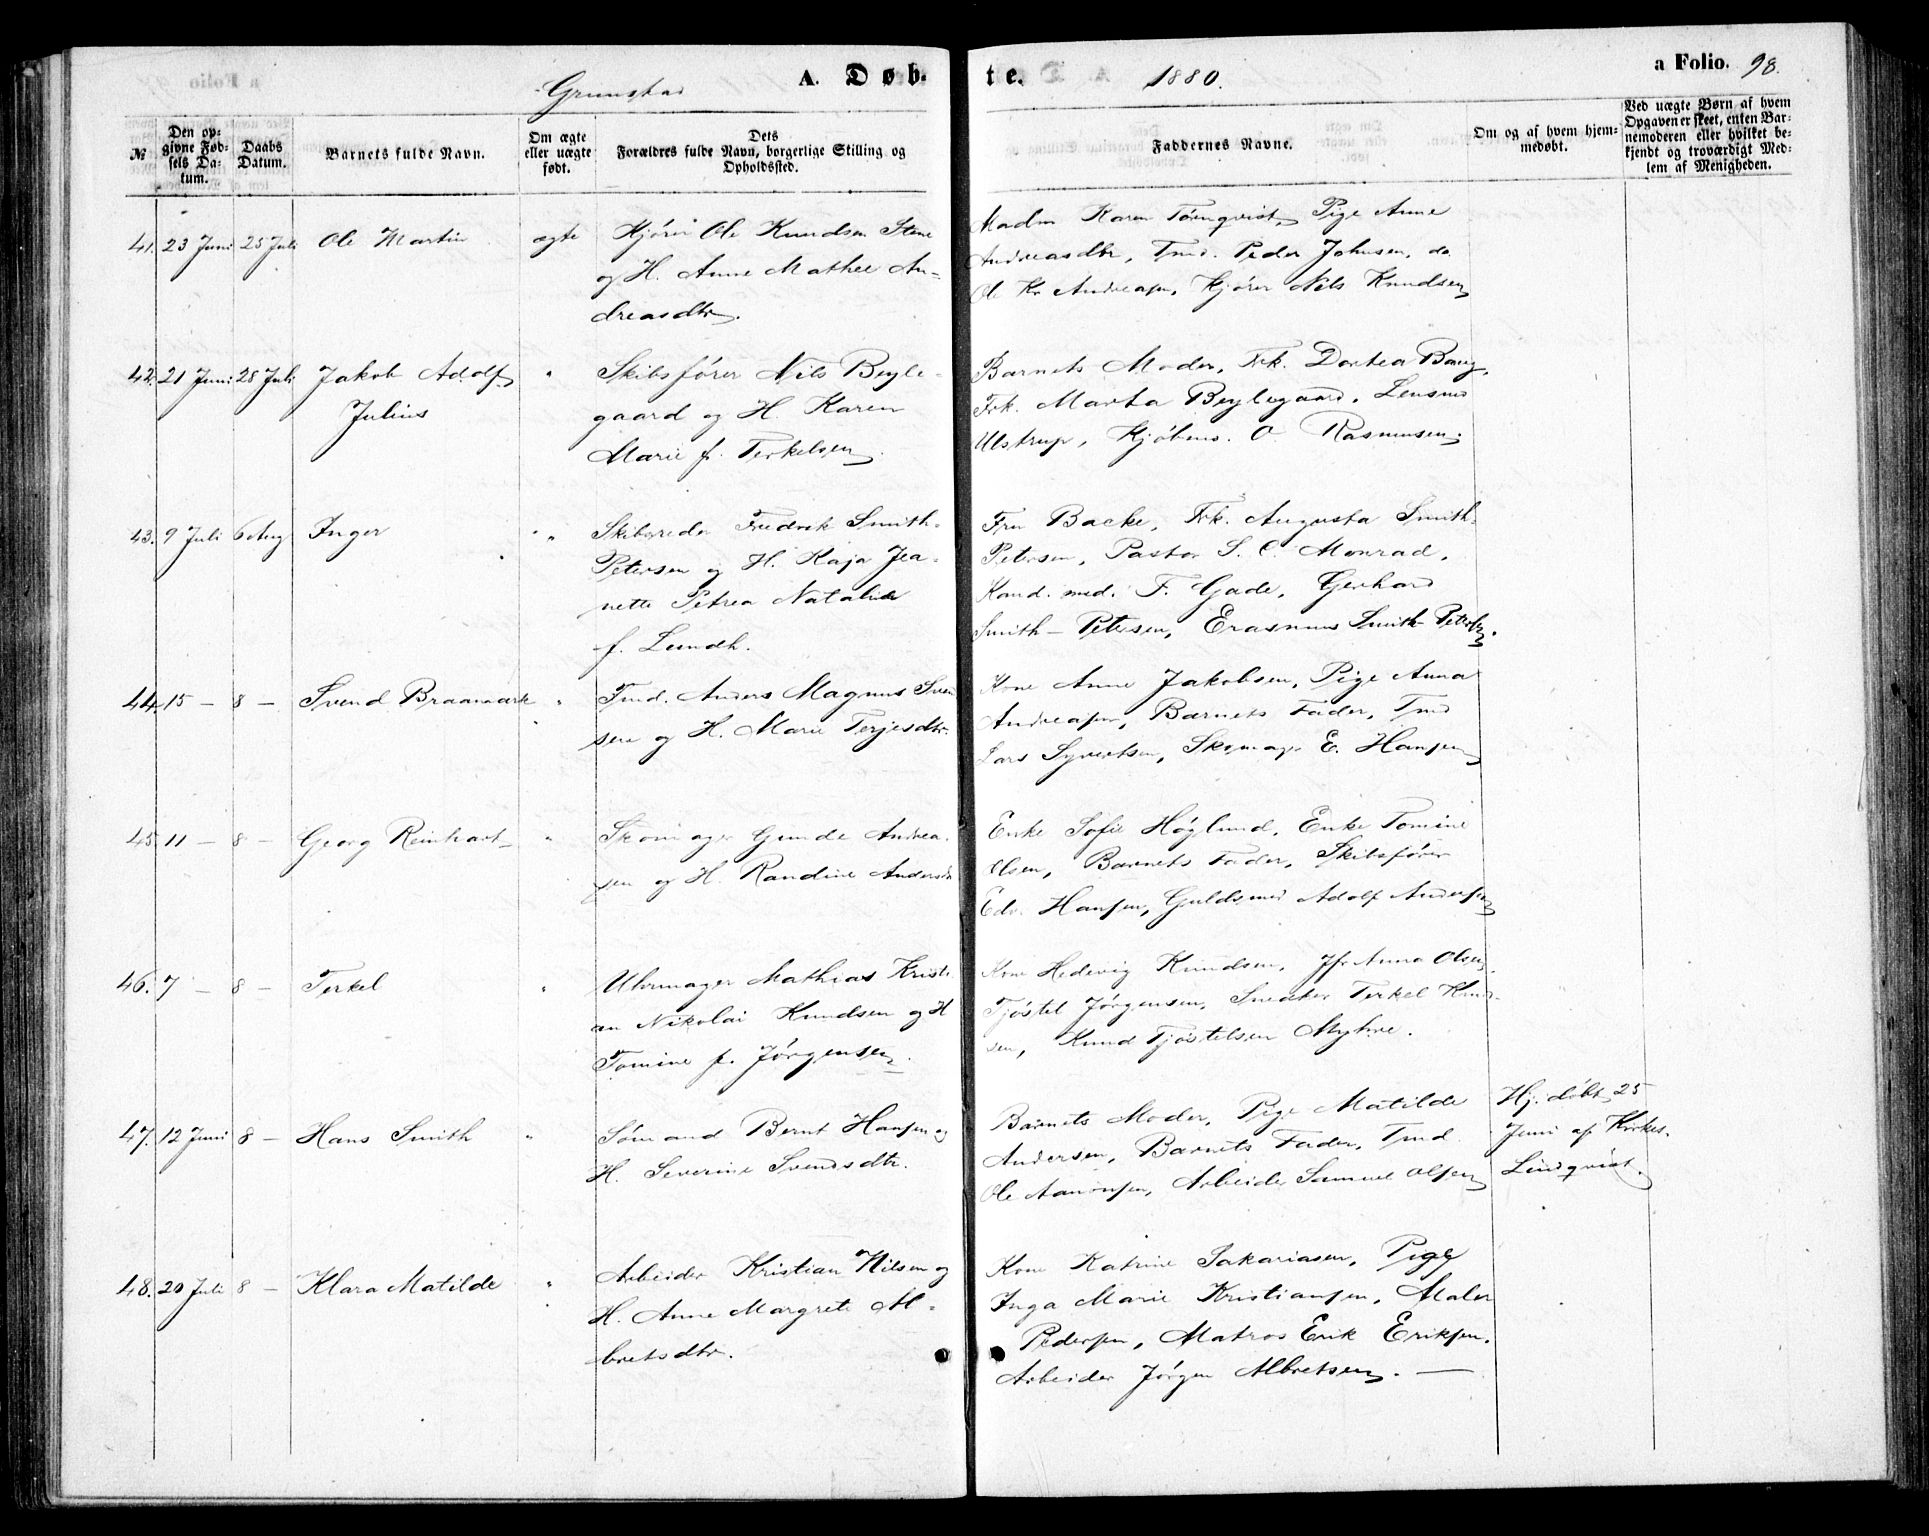 Grimstad A. Døb- te. 1880. a Folio. 98.
№
Den op-
givne Fød-
sels Da-
tum.
Daabs
Datum.
Barnets fulde Navn.
Om ægte
eller uægte
født.
Dets
Forældres fulde Navn, borgerlige Stilling og
Opholdssted.
Faddernes Navne.
Om og af hvem hjem-
medøbt.
Ved uægte Børn af hvem
Opgaven er skeet, enten Bar-
nemoderen eller hvilket be-
kjendt og troværdigt Med-
lem af Menigheden.
41. 23 Juni 25 Juli Ole Martin ægte Kjører Ole Knudsen Stene
og H. Anne Mathee An-
dreasdtr.
Madm Karen Tørnqvist, Pige Anne
Andreasdtr, Tmd. Peder Johnsen, do
Ole Kr Andreasen, Kjører Nils Knudsen
42. 21 Juni 28 Juli Jakob Adolf " Skibsfører Nils Beyle-
Julius gaard og H. Karen
Marie f. Terkelsen.
Barnets Moder, Frk. Dortea Bang,
Frk. Marta Beylegaard, Lensmd
Ulstrup, Kjøbm. O. Rasmusen.
43. 9 Juli 6 Aug Inger " Skibsreder Fredrik Smith-
Petersen og H. Kaja Jea-
nette Petrea Natalia
f. Lundh.
Fru Backe, Frk. Augusta Smith-
Petersen, Pastor S. C. Monrad,
Kand. med. F. Gade, Gerhard
Smith-Petersen, Erasmus Smith-Petersen.
44. 15 — 8 — Svend Braamark " Tmd. Anders Magnus Svend
sen og H. Marie Terjesdtr.
Kone Anne Jakobsen, Pige Anna
Andreasen, Barnets Fader, Tmd
Lars Syvertsen, Skomag. E. Hansen
45. 11 — 8 — Georg Reinhart " Skomager Gunde Andrea-
sen og H. Randine Andersdtr
Enke Sofie Høglund, Enke Tomine
Olsen, Barnets Fader, Skibsfører
Edv. Hansen, Guldsmed Adolf Andersen
46. 7 — 8 — Terkel " Uhrmager Mathias Kristi
an Nikolai Knudsen og H
Tomine f. Jørgensen.
Kone Hedevig Knudsen, Jfr Anna Olsen,
Tjøstel Jørgensen, Snedker Terkel Knud-
sen, Knud Tjøstelsen Myhre.
47. 12 Juni 8 — Hans Smith " Sømand Bernt Hansen og
H. Severine Svendsdtr.
Barnets Moder, Pige Matilde
Andersen, Barnets Fader, Tmd.
Ole Aanonsen, Arbeider Samuel Olsen
Hj. døbt 25
Juni af Kirkes.
Lindqvist.
48. 20 Juli 8 — Klara Matilde " Arbeider Kristian Nilsen og
H. Anne Margrete Al-
bretsdtr.
Kone Katrine Sakariasen, Pige
Inga Marie Kristiansen, Maler
Pedersen, Matros Erik Eriksen,
Arbeider Jørgen Albretsen. —